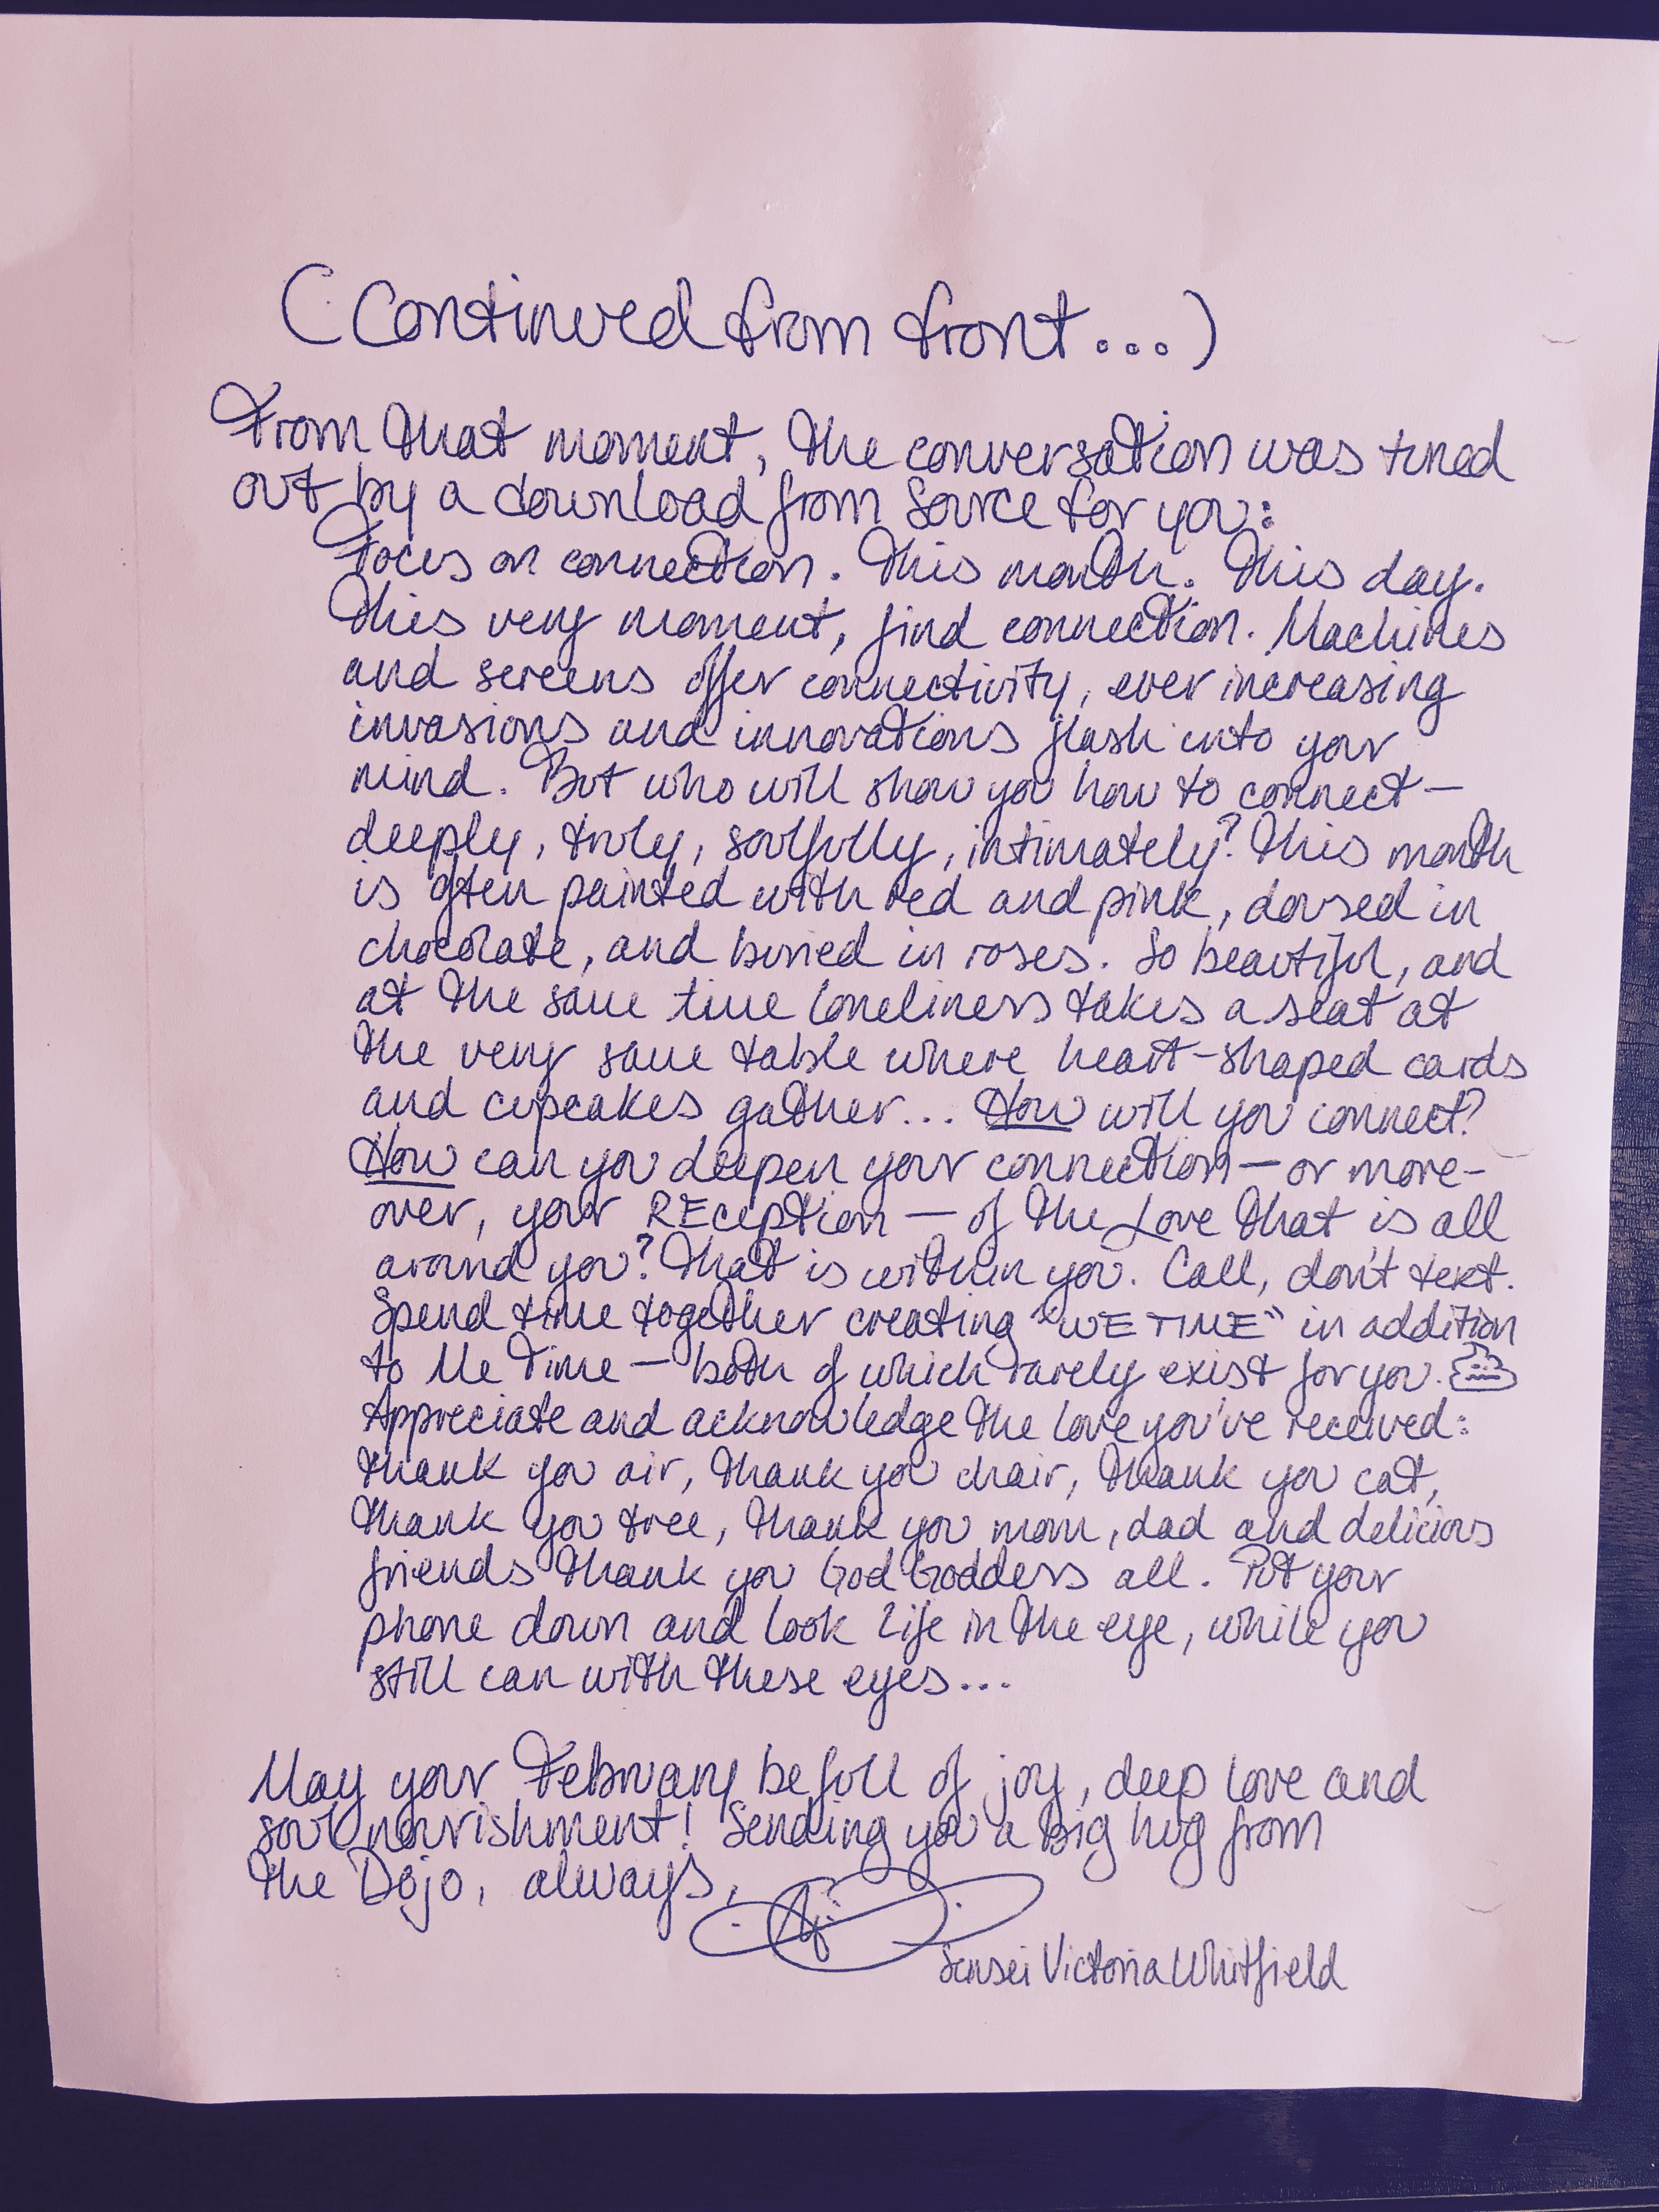 (Continued from front...)
From that moment, the conversation was tuned
out by a download from Source for you:
Focus on connection. This month. This day.
This very moment, find connection. Machines
and screens offer connectivity, ever increasing
invasions and innovations flash into your
mind. But who will show you how to connect—
deeply, truly, soulfully, intimately? This month
is often painted with red and pink, doused in
chocolate, and buried in roses. So beautiful, and
at the same time loneliness takes a seat at
the very same table where heart-shaped cards
and cupcakes gather... How will you connect?
How can you deepen your connection—or more-
over, your REception—of the Love that is all
around you? That is within you. Call, don't text.
Spend time together creating "WE TIME" in addition
to Me Time—both of which rarely exist for you.
Appreciate and acknowledge the love you've received:
Thank you air, thank you chair, thank you cat,
thank you tree, thank you mom, dad and delicious
friends thank you God Goddess all. Put your
phone down and look life in the eye, while you
still can with these eyes...
May your February be full of joy, deep love and
soul nourishment! Sending you a big hug from
the Dojo, always,
Sensei Victoria Whitfield